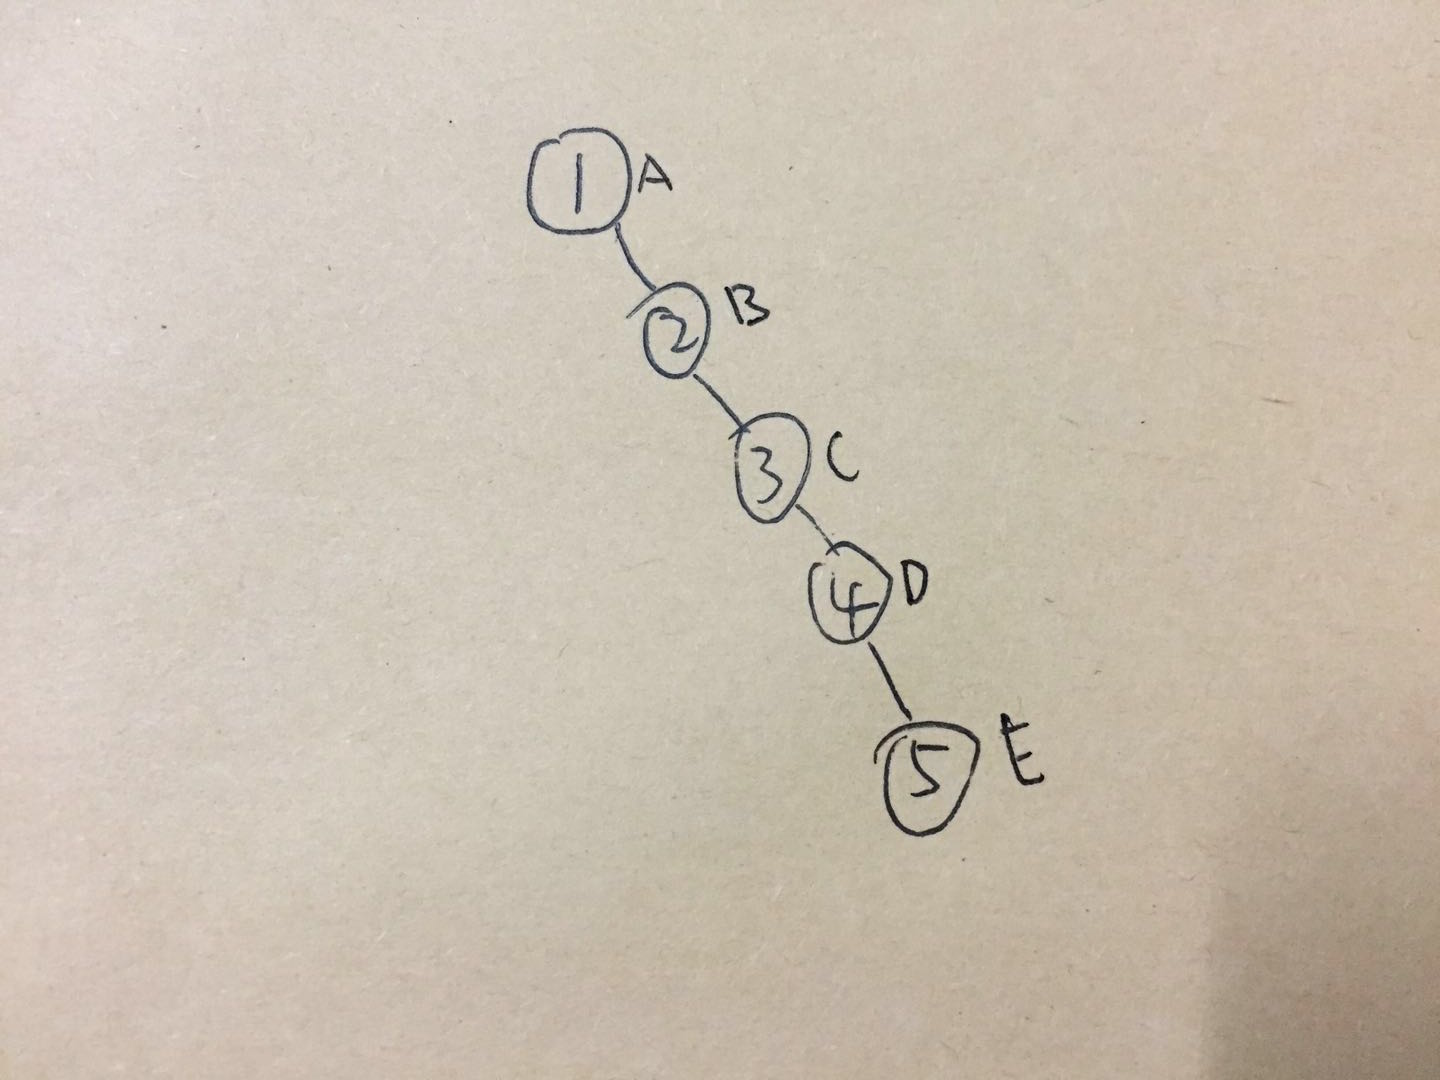 1 A
2 B
3 C
4 D
5 E